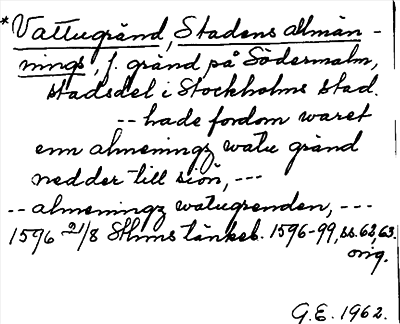 * Vattugränd, Stadens allmän-
nings, f. gränd på Södermalm,
stadsdel i Stockholms stad.
-- hade fordom waret
enn almeningz watu gränd
nedder till siön, ---
-- almeningz watugrenden, ---
1596 21/8 Sthms tänkeb. 1596-99, ss. 62, 63.
orig.
G.E. 1962.